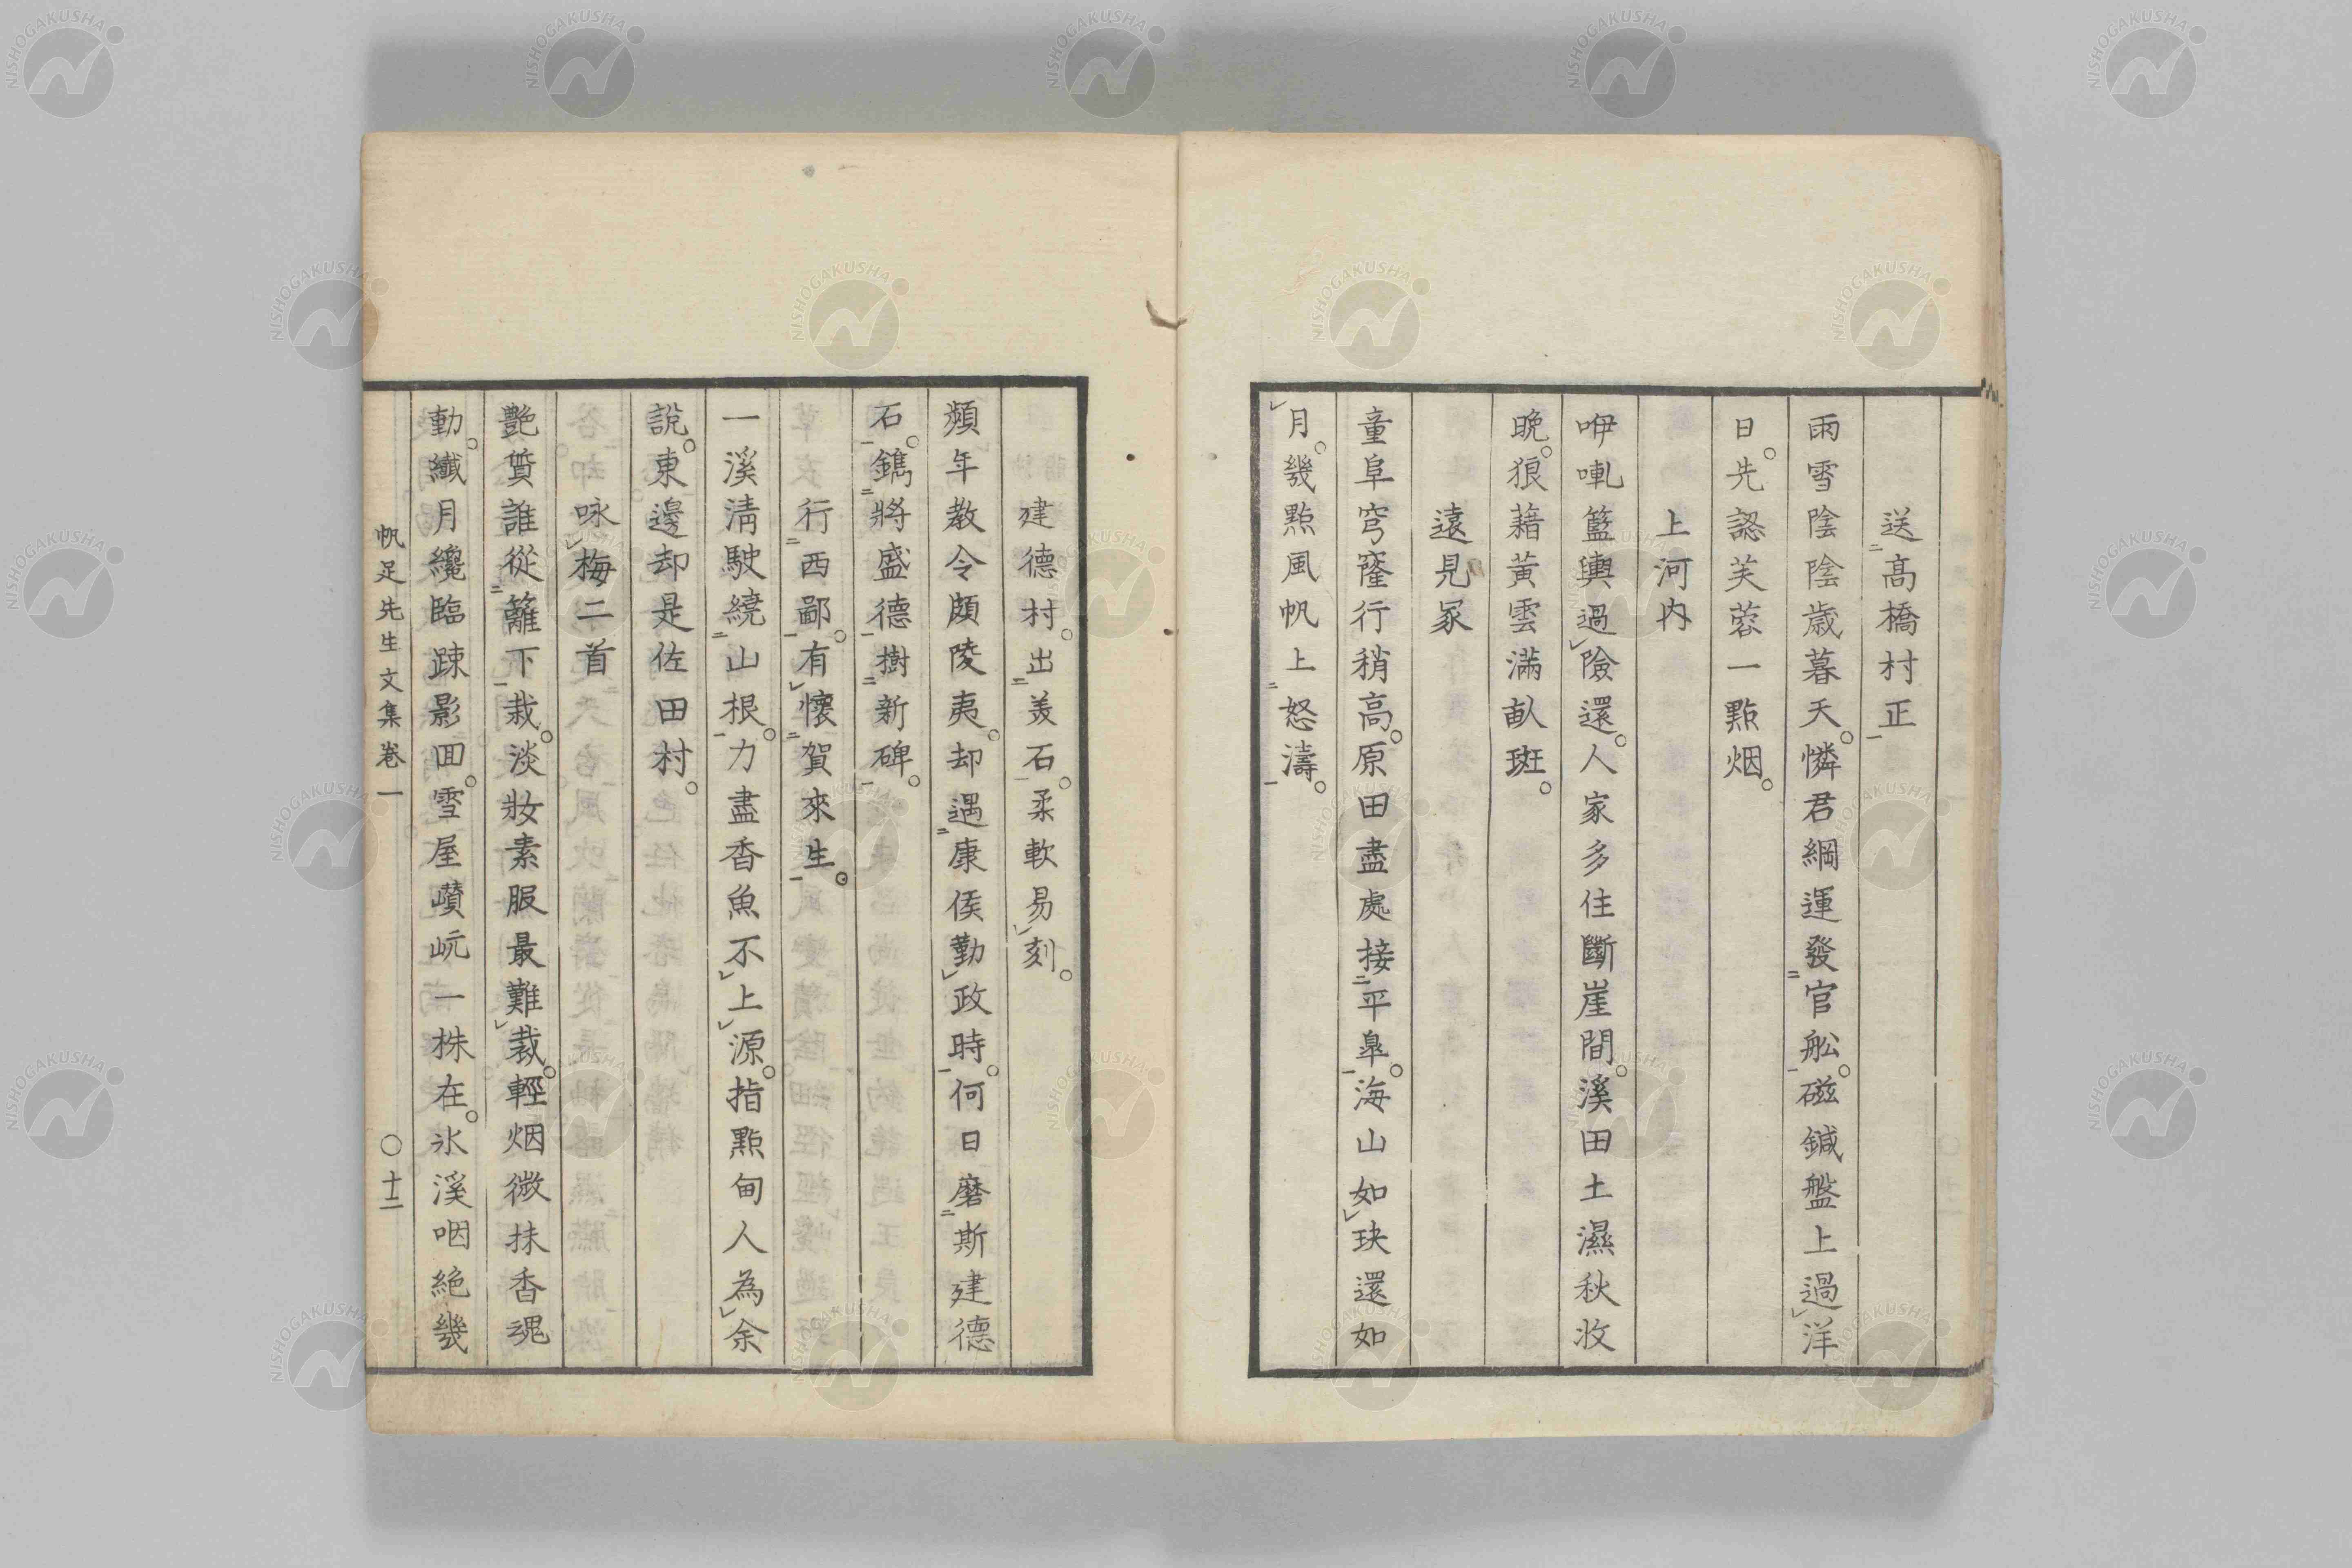 送高橋村正
雨雪陰陰歳暮天。憐君綱運發官舩。磁鍼盤上過洋
日。先認芙蓉一點烟。
上河内
咿喇籃輿過險還。人家多住斷崖間。溪田土濕秋收
晩。狼藉黃雲滿畝斑。
遠見冢
童阜穹窿行稍高。原田盡處接平皐。海山如玦還如
月。幾點風帆上怒濤。
建德村。出美石。柔軟易刻。
頻年教令頗陵夷。却遇康侯勤政時。何日磨斯建德
石。鐫將盛德樹新碑。
行西鄙。有懷賀來生。
一溪淸駛繞山根。力盡香魚不上源。指點甸人為余
說。東邊却是佐田村。
咏梅二首
艶質誰從籬下栽。淡妝素服最難裁。輕烟微抹香魂
動。纖月纔臨踈影回。雪屋巑岏一株在。氷溪咽絕幾
帆足先生文集卷一 〇十二
NISHOGAKUSHA